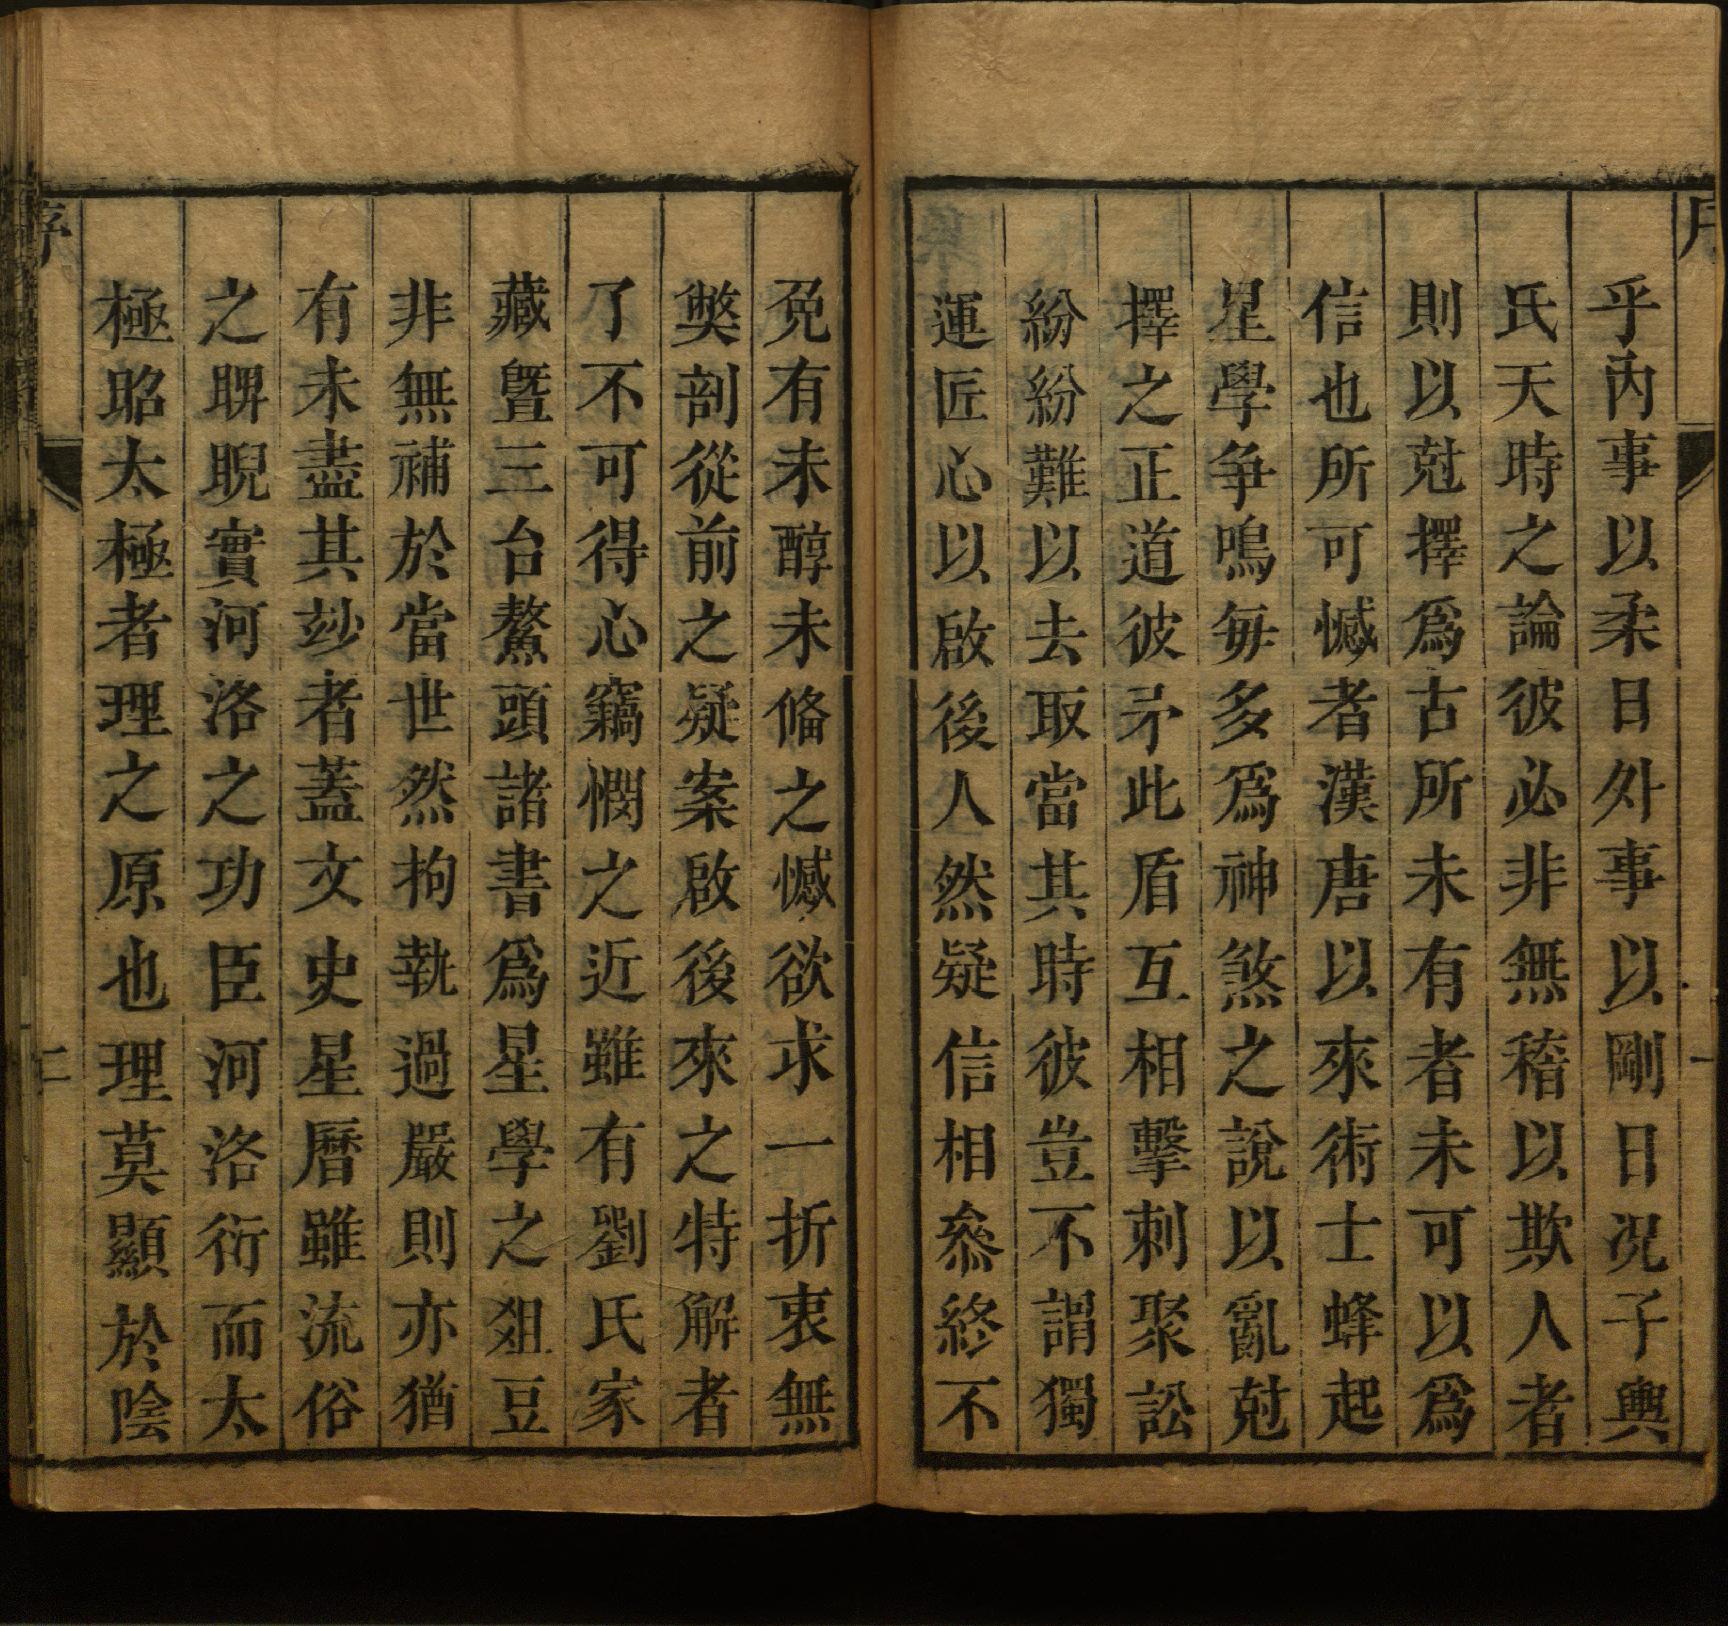 序
一
乎內事以柔日外事以剛日况子輿
氏天時之論彼必非無稽以欺人者
則以尅擇爲古所未有者未可以爲
信也所可憾者漢唐以來術士蜂起
星學争鳴每多爲神煞之說以亂尅
擇之正道彼矛此盾互相擊刺聚訟
紛紛難以去取當其時彼豈不謂獨
運匠心以啟後人然疑信相叅終不
免有未醇未俻之憾欲求一折衷無
獘剖從前之疑案啟後來之特解者
了不可得心竊憫之近雖有劉氏家
藏曁三台鰲頭諸書爲星學之俎豆
非無補於當世然拘執過嚴則亦猶
有未盡其玅者蓋文史星曆雖流俗
之睤睨實河洛之功臣河洛衍而太
極昭太極者理之原也理莫顯於陰
序
二